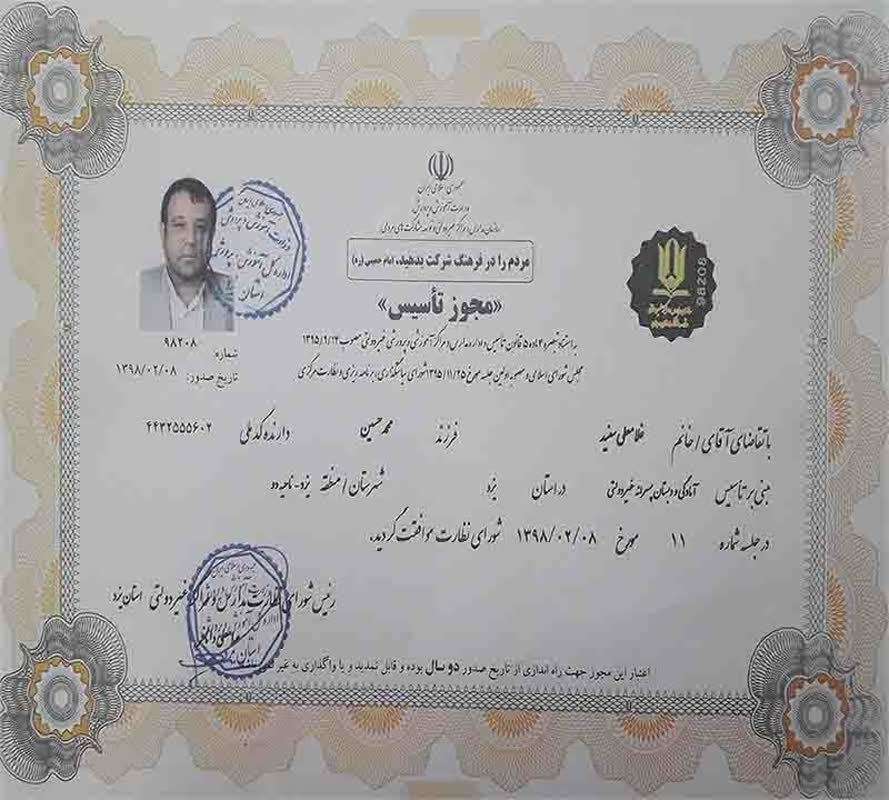 جمهوری اسلامی ایران
وزارت آموزش و پرورش
سازمان مدارس و مراکز غیردولتی و توسعه مشارکت های مردمی
مردم را در فرهنگ شرکت بدهید. امام خمینی (ره)
«مجوز تأسیس»
98208
شماره: ۹۸۲۰۸
تاریخ صدور: ۱۳۹۸/۰۲/۰۸
به استناد تبصره ۲ ماده ۵ قانون تأسیس و اداره مدارس و مراکز آموزشی و پرورشی غیردولتی مصوب ۱۳۹۵/۹/۲۴
مجلس شورای اسلامی و مصوبه اولین جلسه مورخ ۱۳۹۵/۱۱/۲۵ شورای سیاستگذاری، برنامه ریزی و نظارت مرکزی
با تقاضای آقای / خانم غلامعلی سفید فرزند محمد حسین دارنده کد ملی ۴۴۳۲۵۵۵۶۰۲
مبنی بر تأسیس آمادگی و دبستان پسرانه غیردولتی در استان یزد شهرستان / منطقه یزد - ناحیه دو
در جلسه شماره ۱۱ مورخ ۱۳۹۸/۰۲/۰۸ شورای نظارت موافقت گردید.
رئیس شورای نظارت مدارس و مراکز غیردولتی استان یزد
اعتبار این مجوز جهت راه اندازی از تاریخ صدور دو سال بوده و قابل تمدید و یا واگذاری به غیر